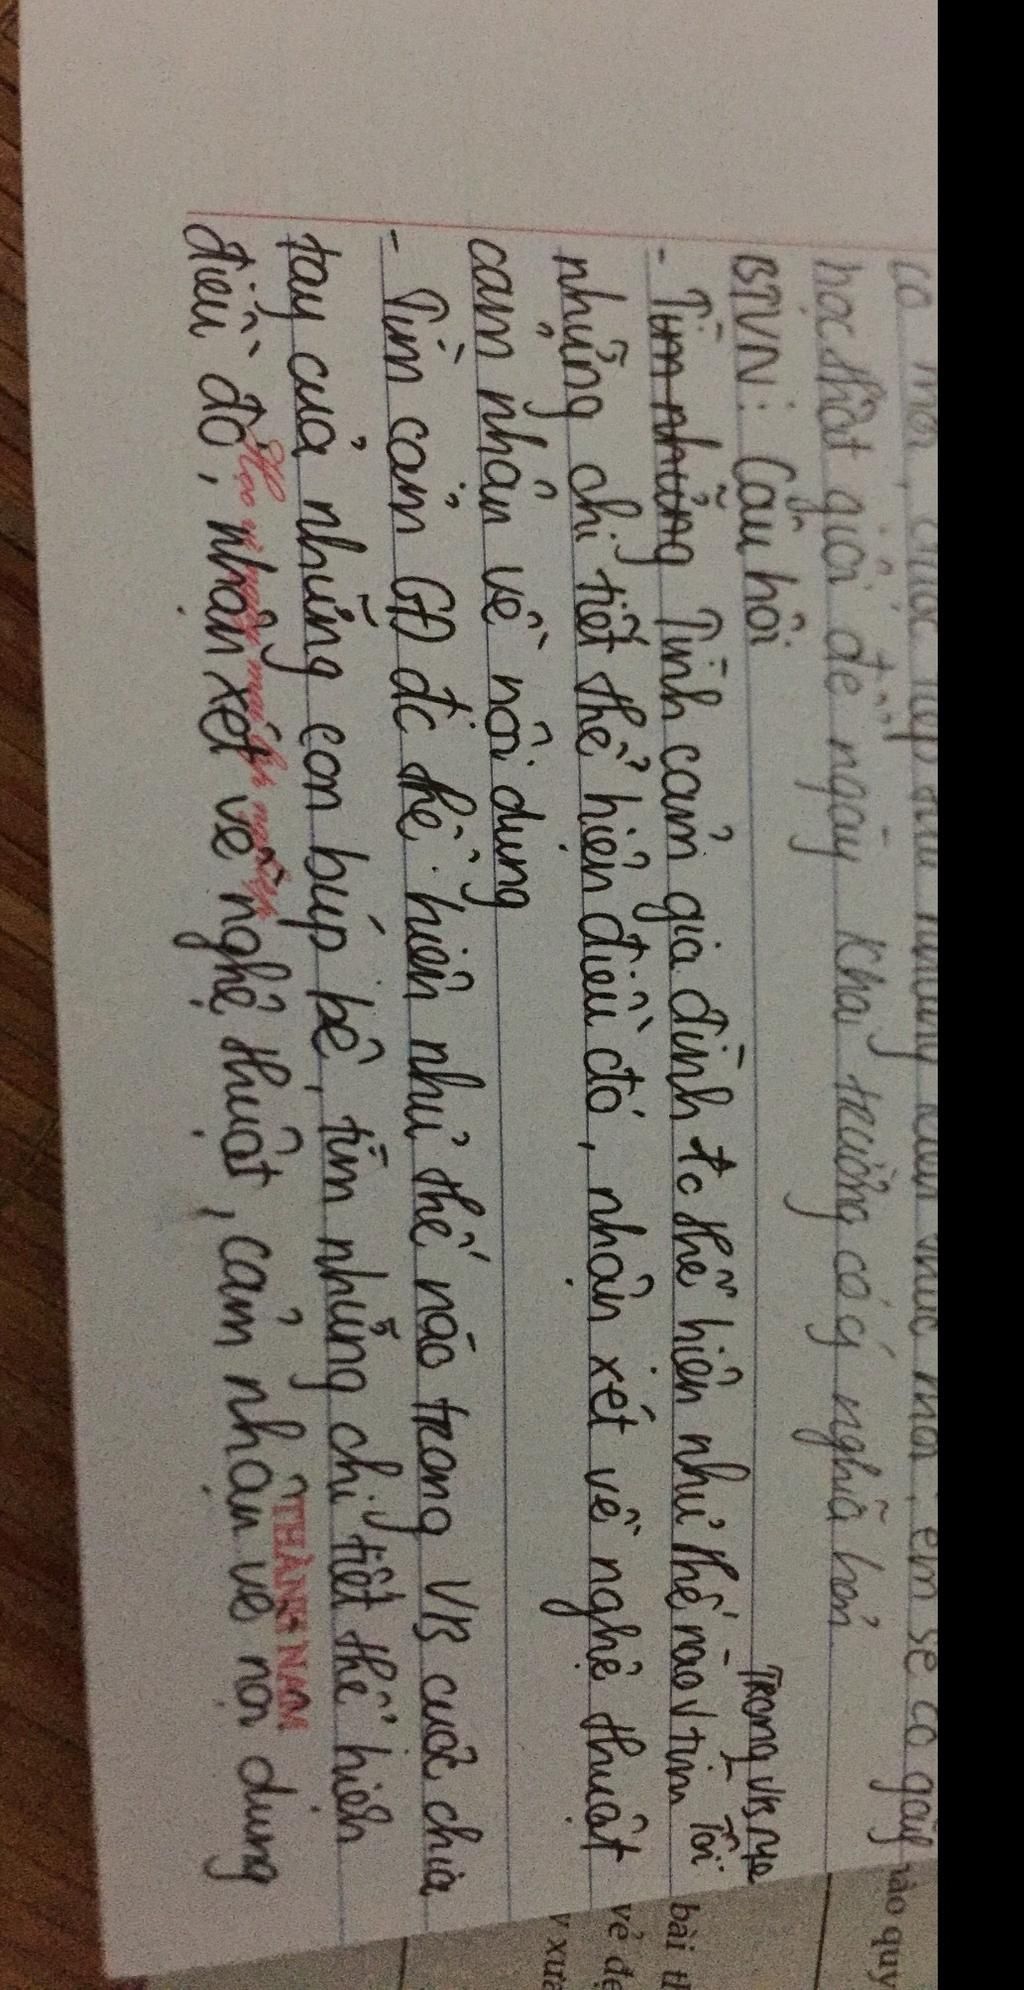 học thật giỏi để ngày khai trường có ý nghĩa hơn
BTVN: Câu hỏi
Trong VB Mẹ Tôi
- Tìm những Tình cảm gia đình tc thể hiện như thế nào √ tìm
những chi tiết thể hiện điều đó, nhận xét về nghệ thuật
cảm nhận về nội dung
- Tình cảm GĐ đc thể hiện như thế nào trong VB cuộc chia
tay của những con búp bê, tìm những chi tiết thể hiện
điều đó, nhận xét về nghệ thuật, cảm nhận về nội dung
THÀNH NAM
ào quy
bài th
vẻ đẹ
y xưa